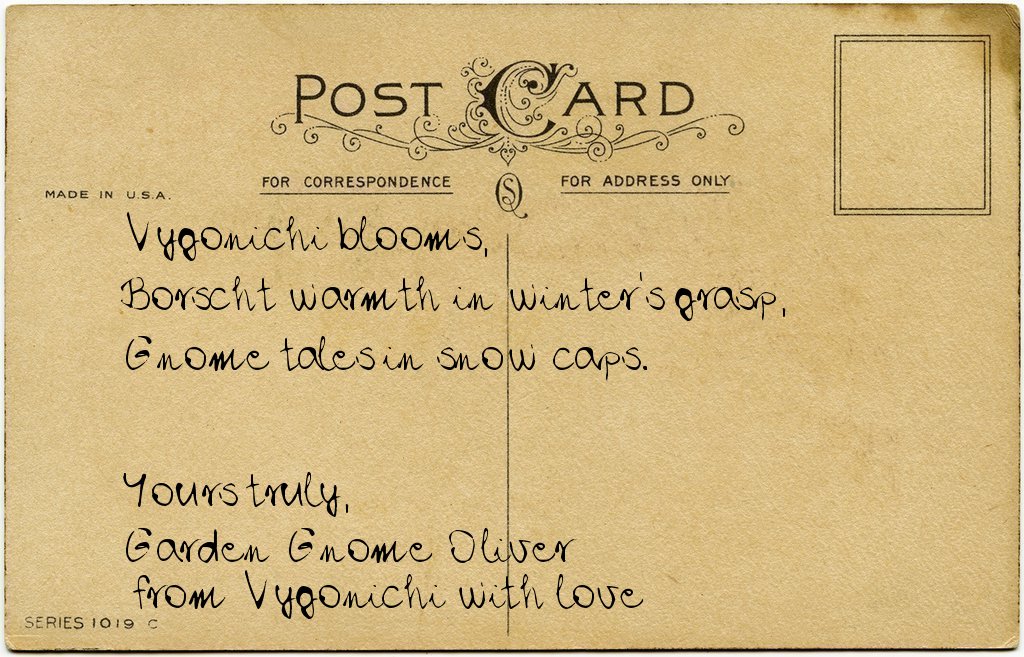 POST CARD
FOR CORRESPONDENCE
FOR ADDRESS ONLY
MADE IN U.S.A.
Vygonichi blooms,
Borscht warmth in winter's grasp,
Gnome tales in snow caps.
Yours truly,
Garden Gnome Oliver
from Vygonichi with love
SERIES 1019 C